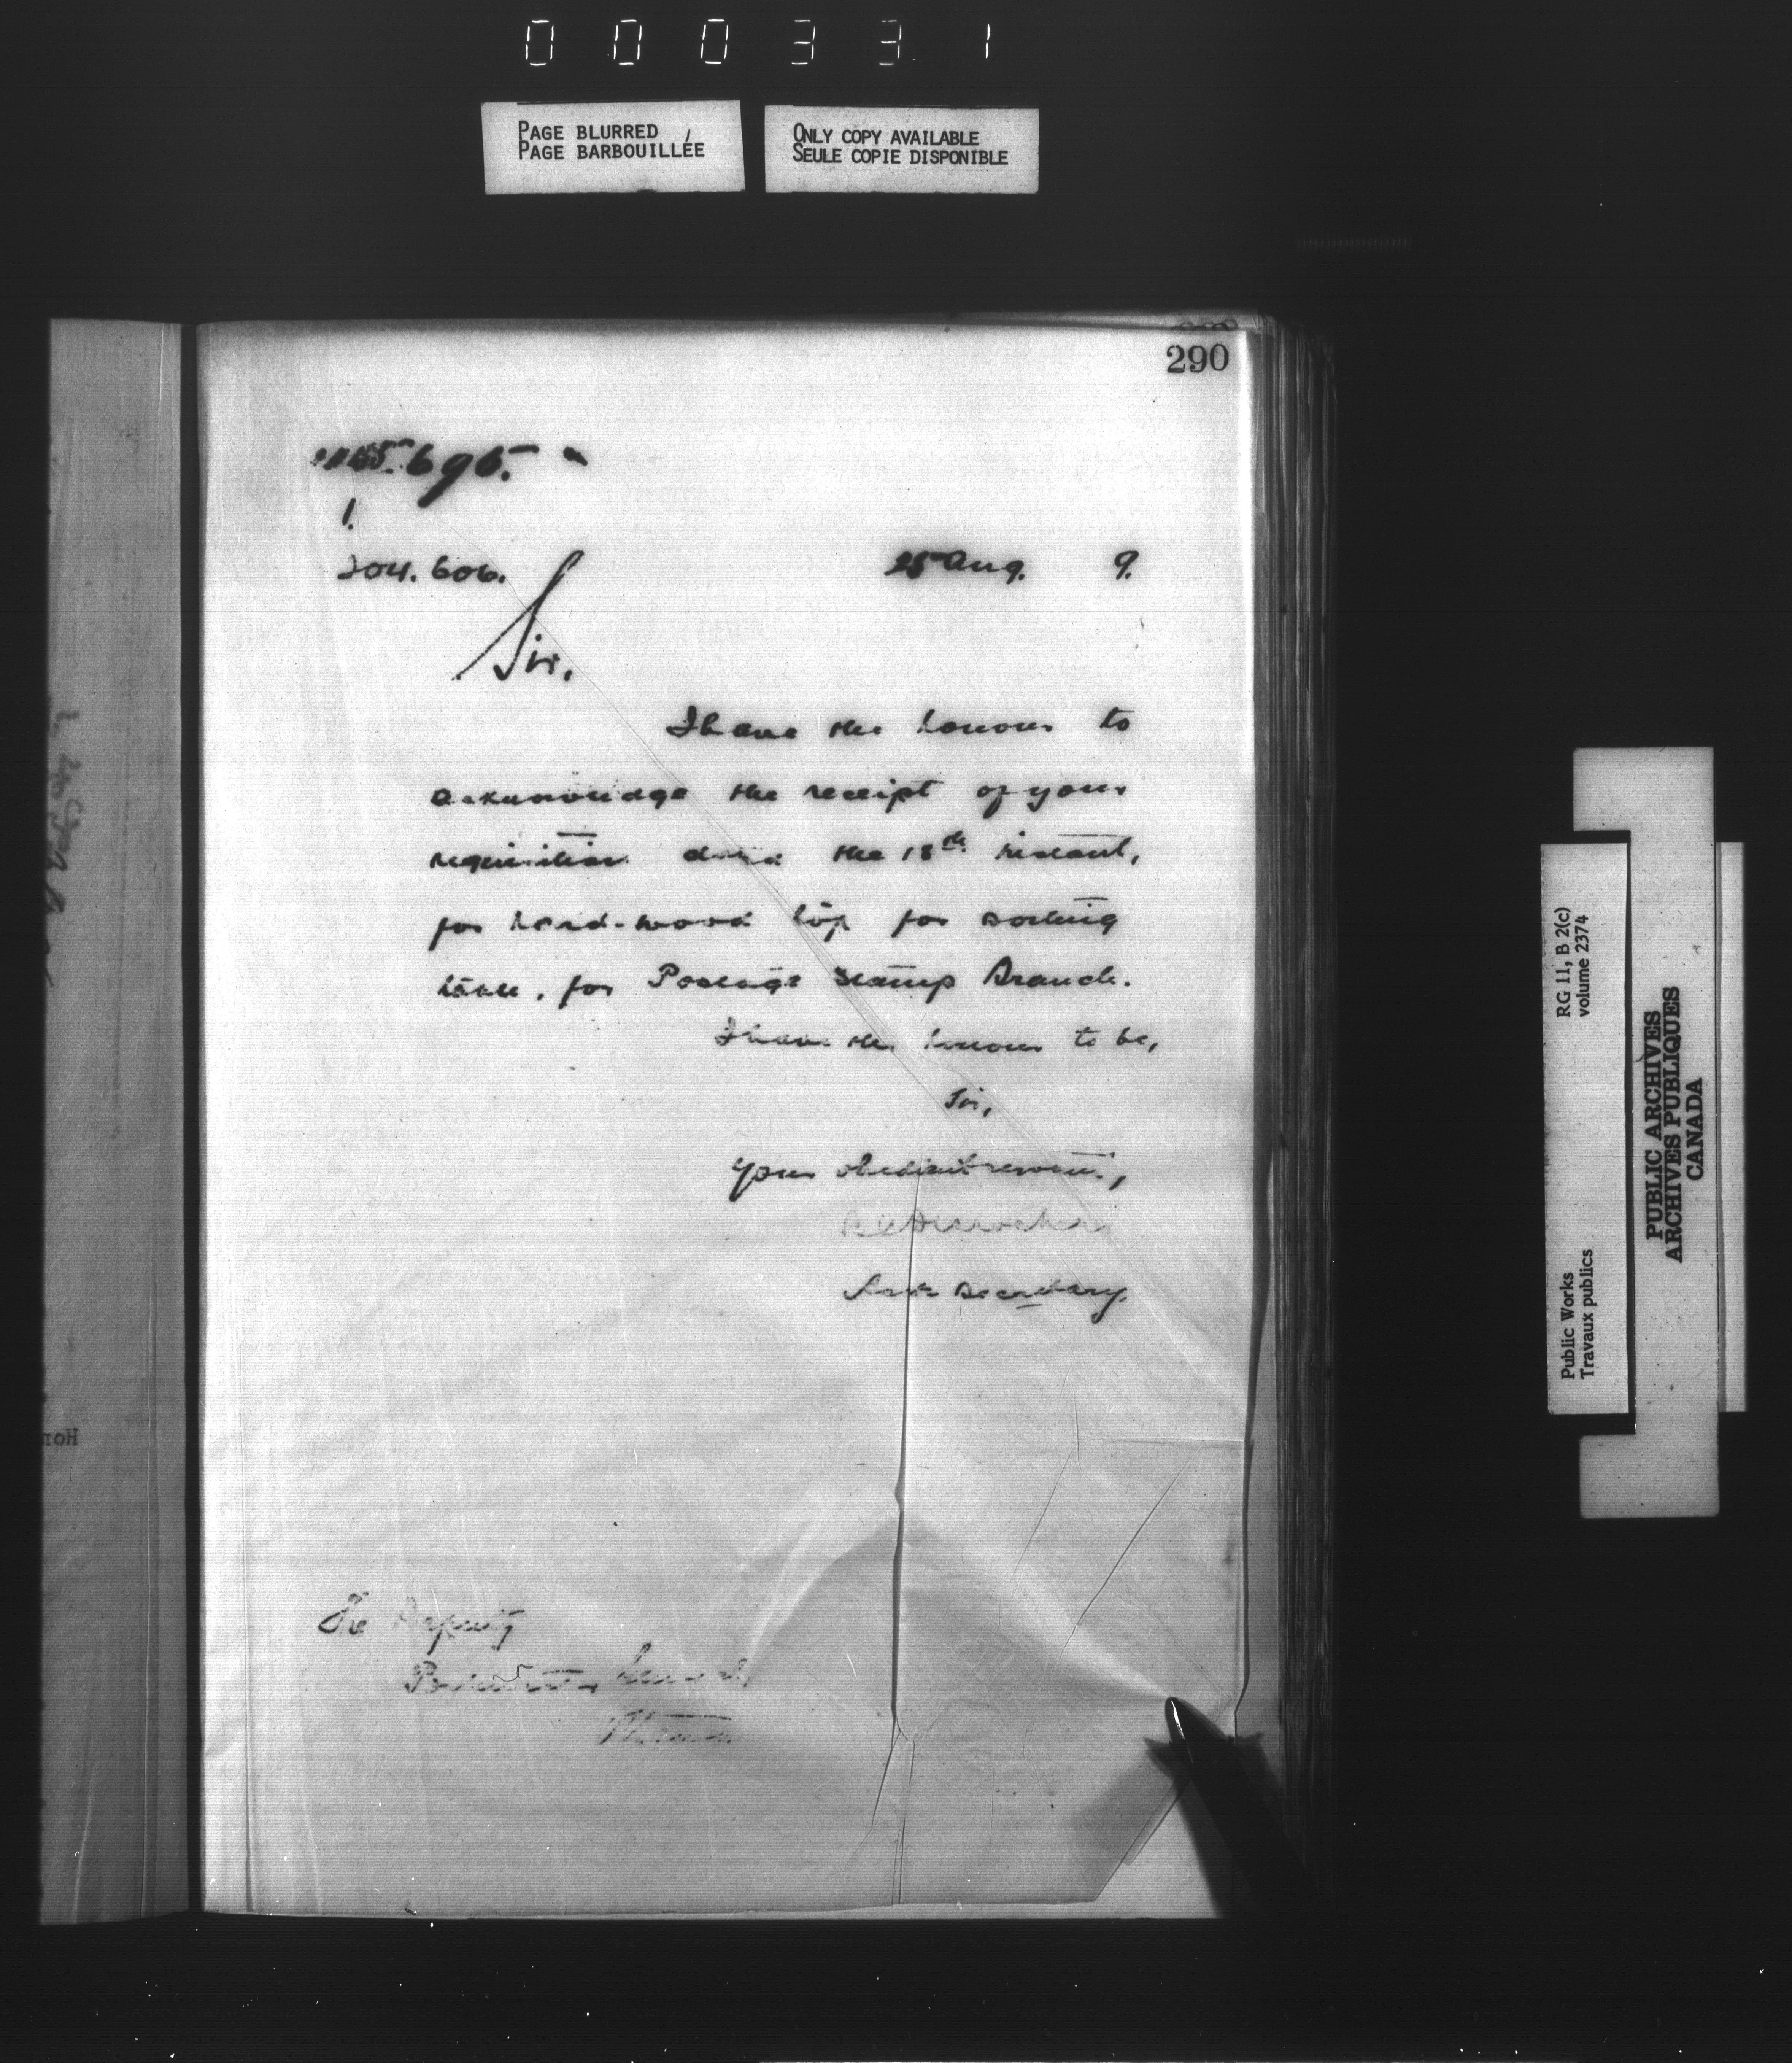 000331
PAGE BLURRED
PAGE BARBOUILLÉE
ONLY COPY AVAILABLE
SEULE COPIE DISPONIBLE
290
695.
1.
204.606.
25 Aug. 9.
Sir,
I have the honour to
acknowledge the receipt of your
requisition dated the 18th instant,
for hard-wood top for sorting
table, for Postage Stamp Branch.
I have the honour to be,
Sir,
Your obedient servant,
Secretary.
The Deputy
Postmaster General,
Ottawa.
RG 11, B 2(c)
volume 2374
Public Works
Travaux publics
PUBLIC ARCHIVES
ARCHIVES PUBLIQUES
CANADA